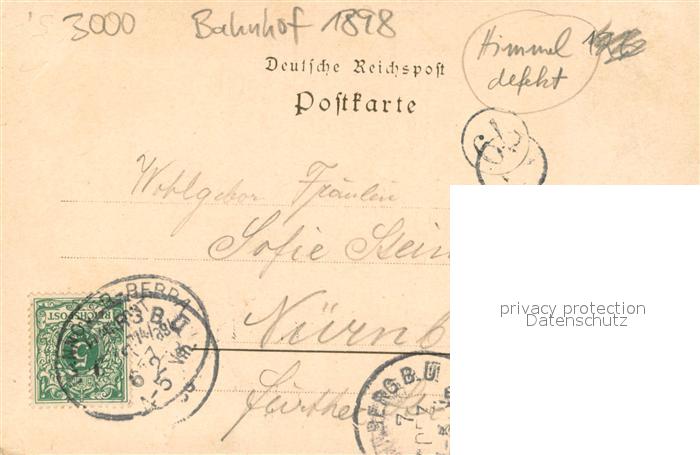 3000 Bahnhof 1898
Himmel
defekt
Deutsche Reichspost
Postkarte
79
Wohlgebor Fräulein
Sofie Stein
Nürnb
Fürther
REICHSPOST
BERG B. Ü
privacy protection
Datenschutz